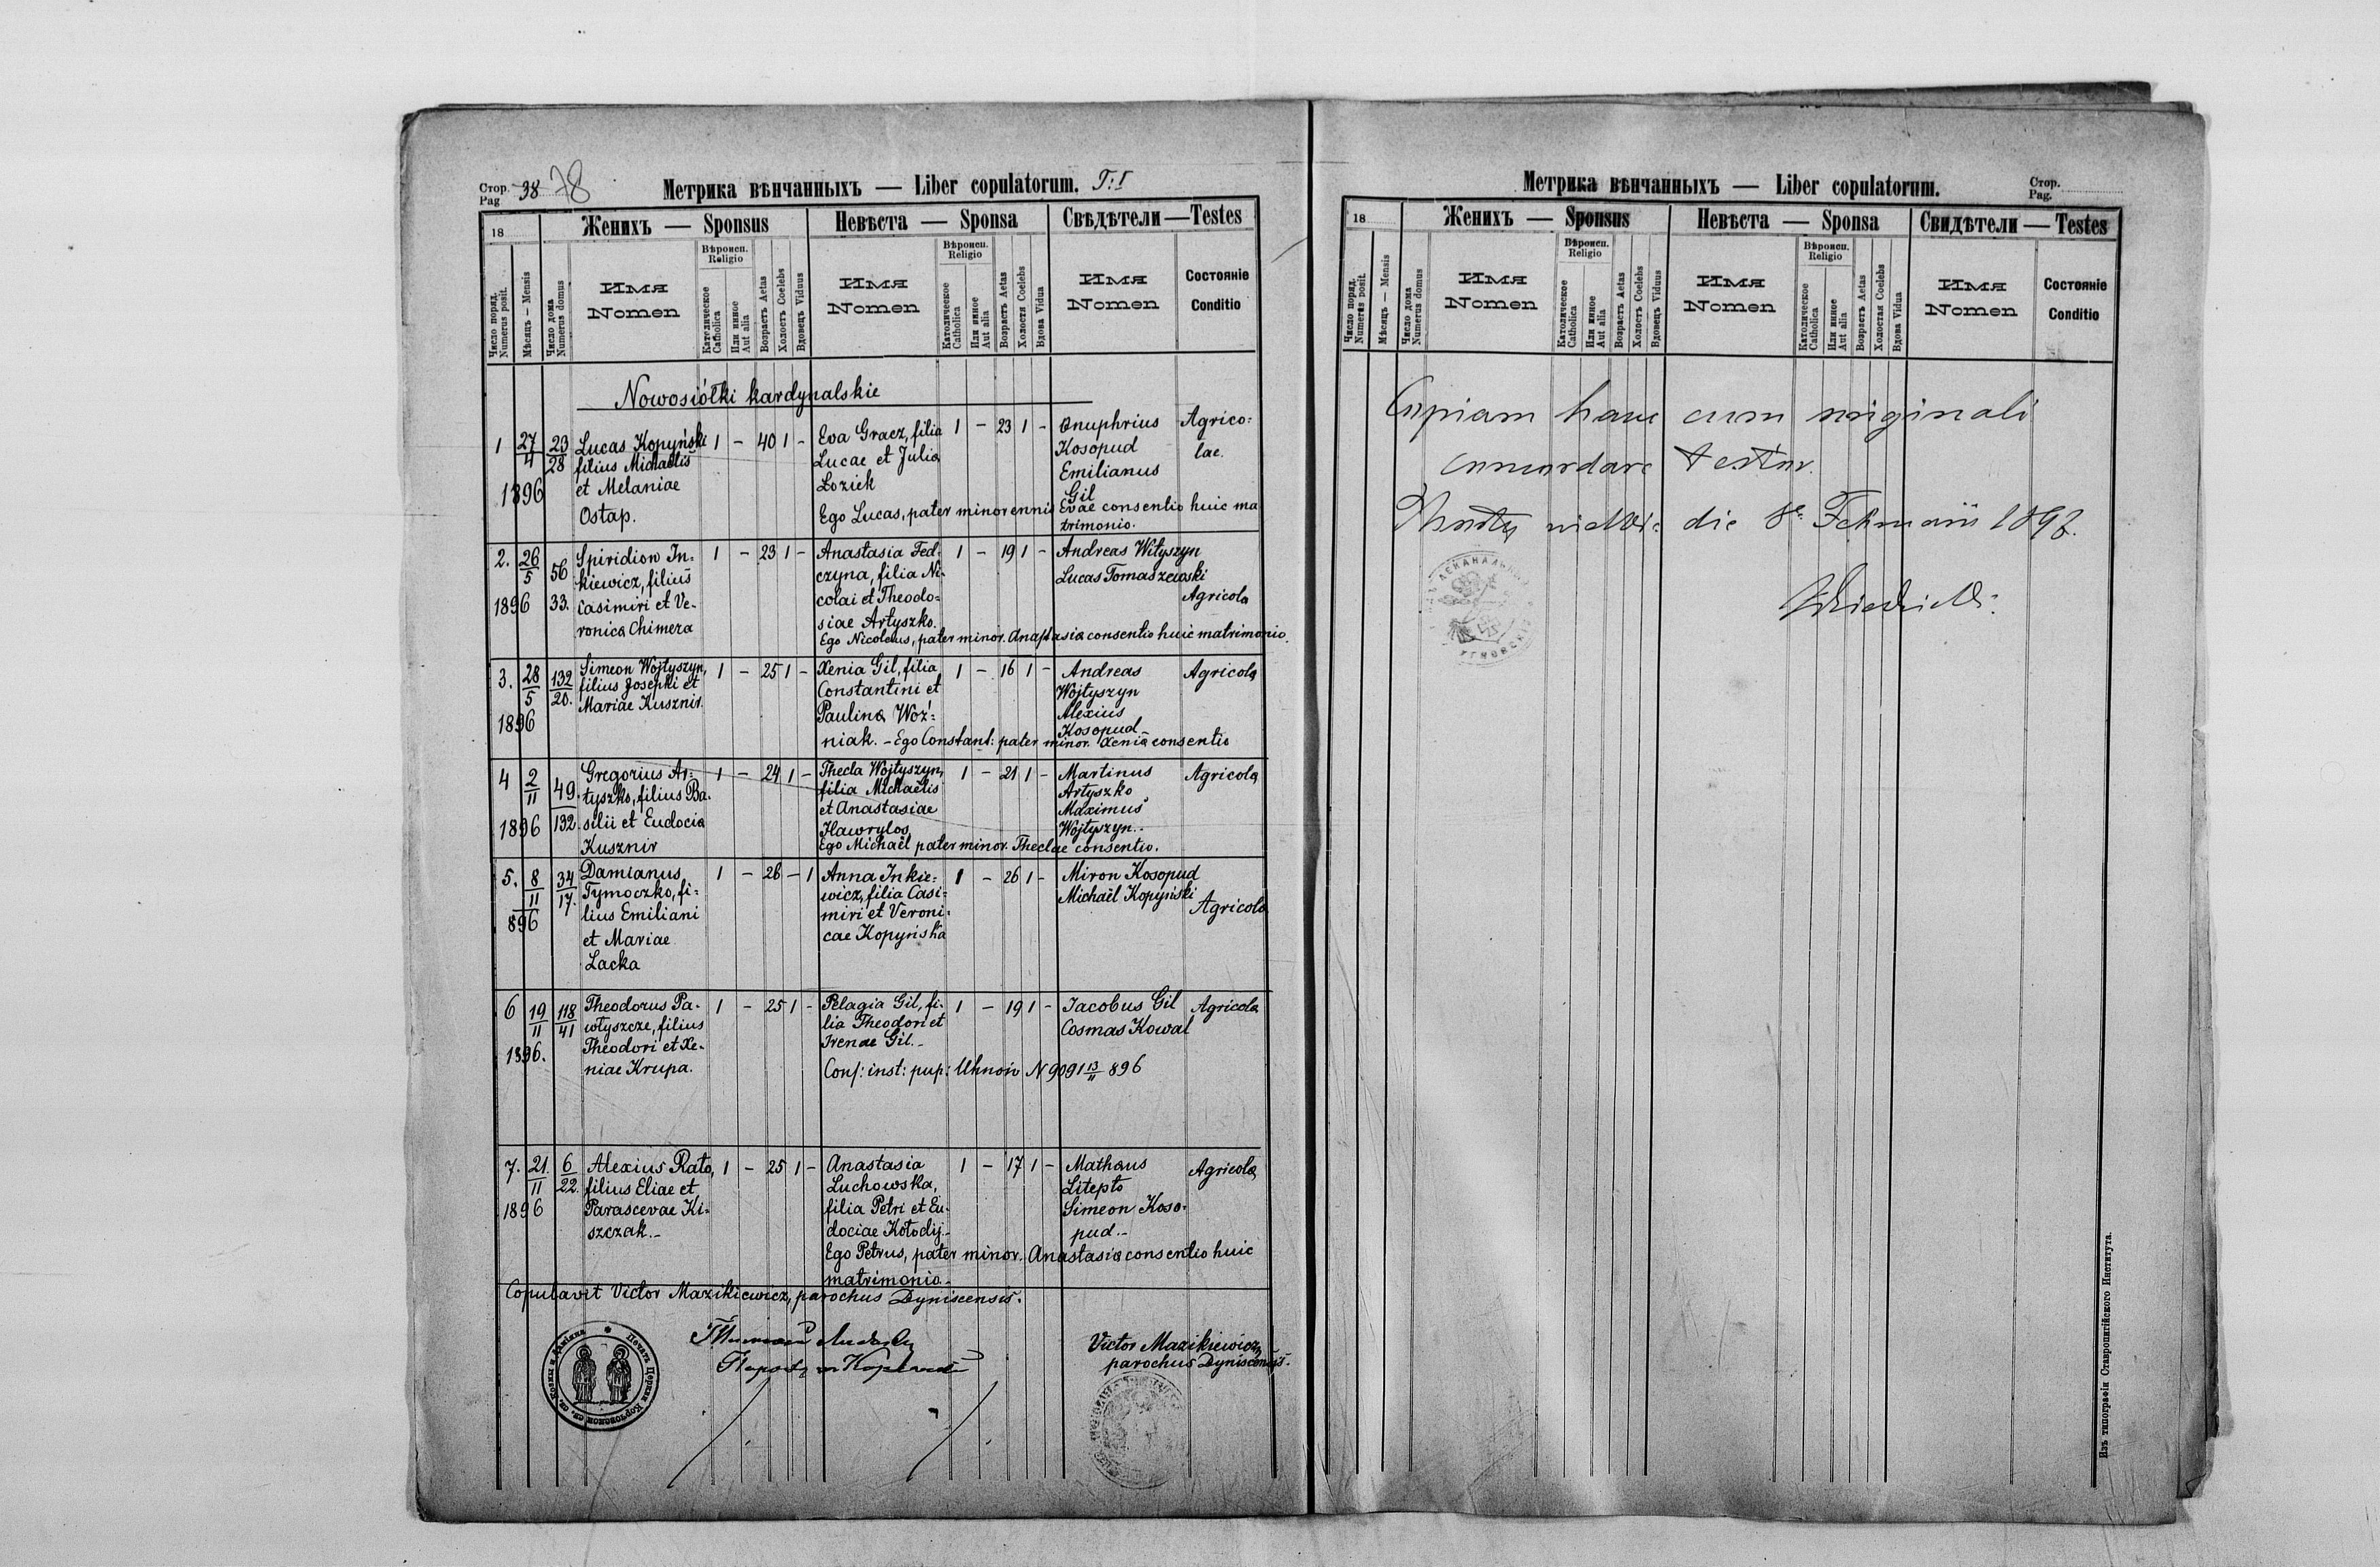 Стор. Pag 38 78
Метрика вѣнчанныхъ — Liber copulatorum. T: I
18
Женихъ — Sponsus
Невѣста — Sponsa
Свѣдѣтели — Testes
Число поряд. Numerus posit.
Мѣсяцъ — Mensis
Число дома Numerus domus
Имя Nomen
Вѣроисп. Religio
Католическое Catholica
Или инное Aut alia
Возрастъ Aetas
Холостъ Coelebs
Вдовецъ Viduus
Имя Nomen
Вѣроисп. Religio
Католическое Catholica
Или инное Aut alia
Возрастъ Aetas
Холостая Coelebs
Вдова Vidua
Имя Nomen
Состояніе Conditio
Nowosiółki kardynalskie
1 27/4 1896 23/28
Lucas Kopyński
filius Michaelis
et Melaniae
Ostap.
1 – 40 1 –
Eva Gracz, filia
Lucae et Julia
Loziek
1 – 23 1 –
Onuphrius
Kosopud
Emilianus
Gil
Agrico:
lae.
Ego Lucas, pater minorennis Evae consentio huic ma
trimonio.
2. 26/5 1896 56 33.
Spiridion In-
kiewicz, filius
Casimiri et Ve-
ronica Chimera
1 – 23 1 –
Anastasia Fed-
czyna, filia Ni-
colai et Theodo=
siae Artyszko.
1 – 19 1 –
Andreas Wityszyn
Lucas Tomaszewski
Agricola
Ego Nicolaus, pater minor. Anastasia consentio huic matrimonio.
3. 28/5 1896 132/20.
Simeon Wojtyszyn,
filius Josephi et
Mariae Kusznir.
1 – 25 1 –
Xenia Gil, filia
Constantini et
Paulina Woź:
niak. – Ego Constant: pater minor. Xenia consentio
1 – 16 1 –
Andreas
Wojtyszyn
Alexius
Kosopud
Agricola
4 2/11 1896 49. 132.
Gregorius Ar:
tyszko, filius Ba.
silii et Eudocia
Kusznir
1 – 24 1 –
Thecla Wojtyszyn,
filia Michaelis
et Anastasiae
Hawrylos
1 – 21 1 –
Martinus
Artyszko
Maximus
Wojtyszyn..
Agricola
Ego Michaël pater minor. Theclae consentio.
5. 8/11 896 34/17.
Damianus
Tymoczko, fi-
lius Emiliani
et Mariae
Lacka
1 – 26 – 1
Anna Inkie:
wicz, filia Casi:
miri et Veroni:
cae Kopyńska
1 – 26 1 –
Miron Kosopud
Michaël Kopyński
Agricola
6 19/11 1896. 118/41
Theodorus Pa-
włyszcze, filius
Theodori et Xe-
niae Krupa.
1 – 25 1 –
Pelagia Gil, fi-
lia Theodori et
Irenae Gil. –
1 – 19 1 –
Jacobus Gil
Cosmas Kowal
Agricola
Conf: inst: pup: Uhnów N 9091 13/11 896
7. 21/11 1896 6/22.
Alexius Rato,
filius Eliae et
Parascevae Ki-
szczak. –
1 – 25 1 –
Anastasia
Luchowska,
filia Petri et Eu-
dociae Kołodij. –
1 – 17 1 –
Mathaus
Litepto
Simeon Koso-
pud. –
Agricola
Ego Petrus, pater minor. Anastasia consentio huic
matrimonio. –
Copulavit Victor Mazikiewicz, parochus Dyniscensis.
Victor Mazikiewicz,
parochus Dyniscensis.
Печать Церкви Корчовской св. св. Космы и Даміяна
Метрика вѣнчанныхъ — Liber copulatorum.
Стор. Pag.
18
Женихъ — Sponsus
Невѣста — Sponsa
Свидѣтели — Testes
Число поряд. Numerus posit.
Мѣсяцъ — Mensis
Число дома Numerus domus
Имя Nomen
Вѣроисп. Religio
Католическое Catholica
Или инное Aut alia
Возрастъ Aetas
Холостъ Coelebs
Вдовецъ Viduus
Имя Nomen
Вѣроисп. Religio
Католическое Catholica
Или инное Aut alia
Возрастъ Aetas
Холостая Coelebs
Вдова Vidua
Имя Nomen
Состояніе Conditio
Copiam hanc cum originali
concordare testor.
die 8e Februarii 1897.
Изъ типографіи Ставропигійского Института.